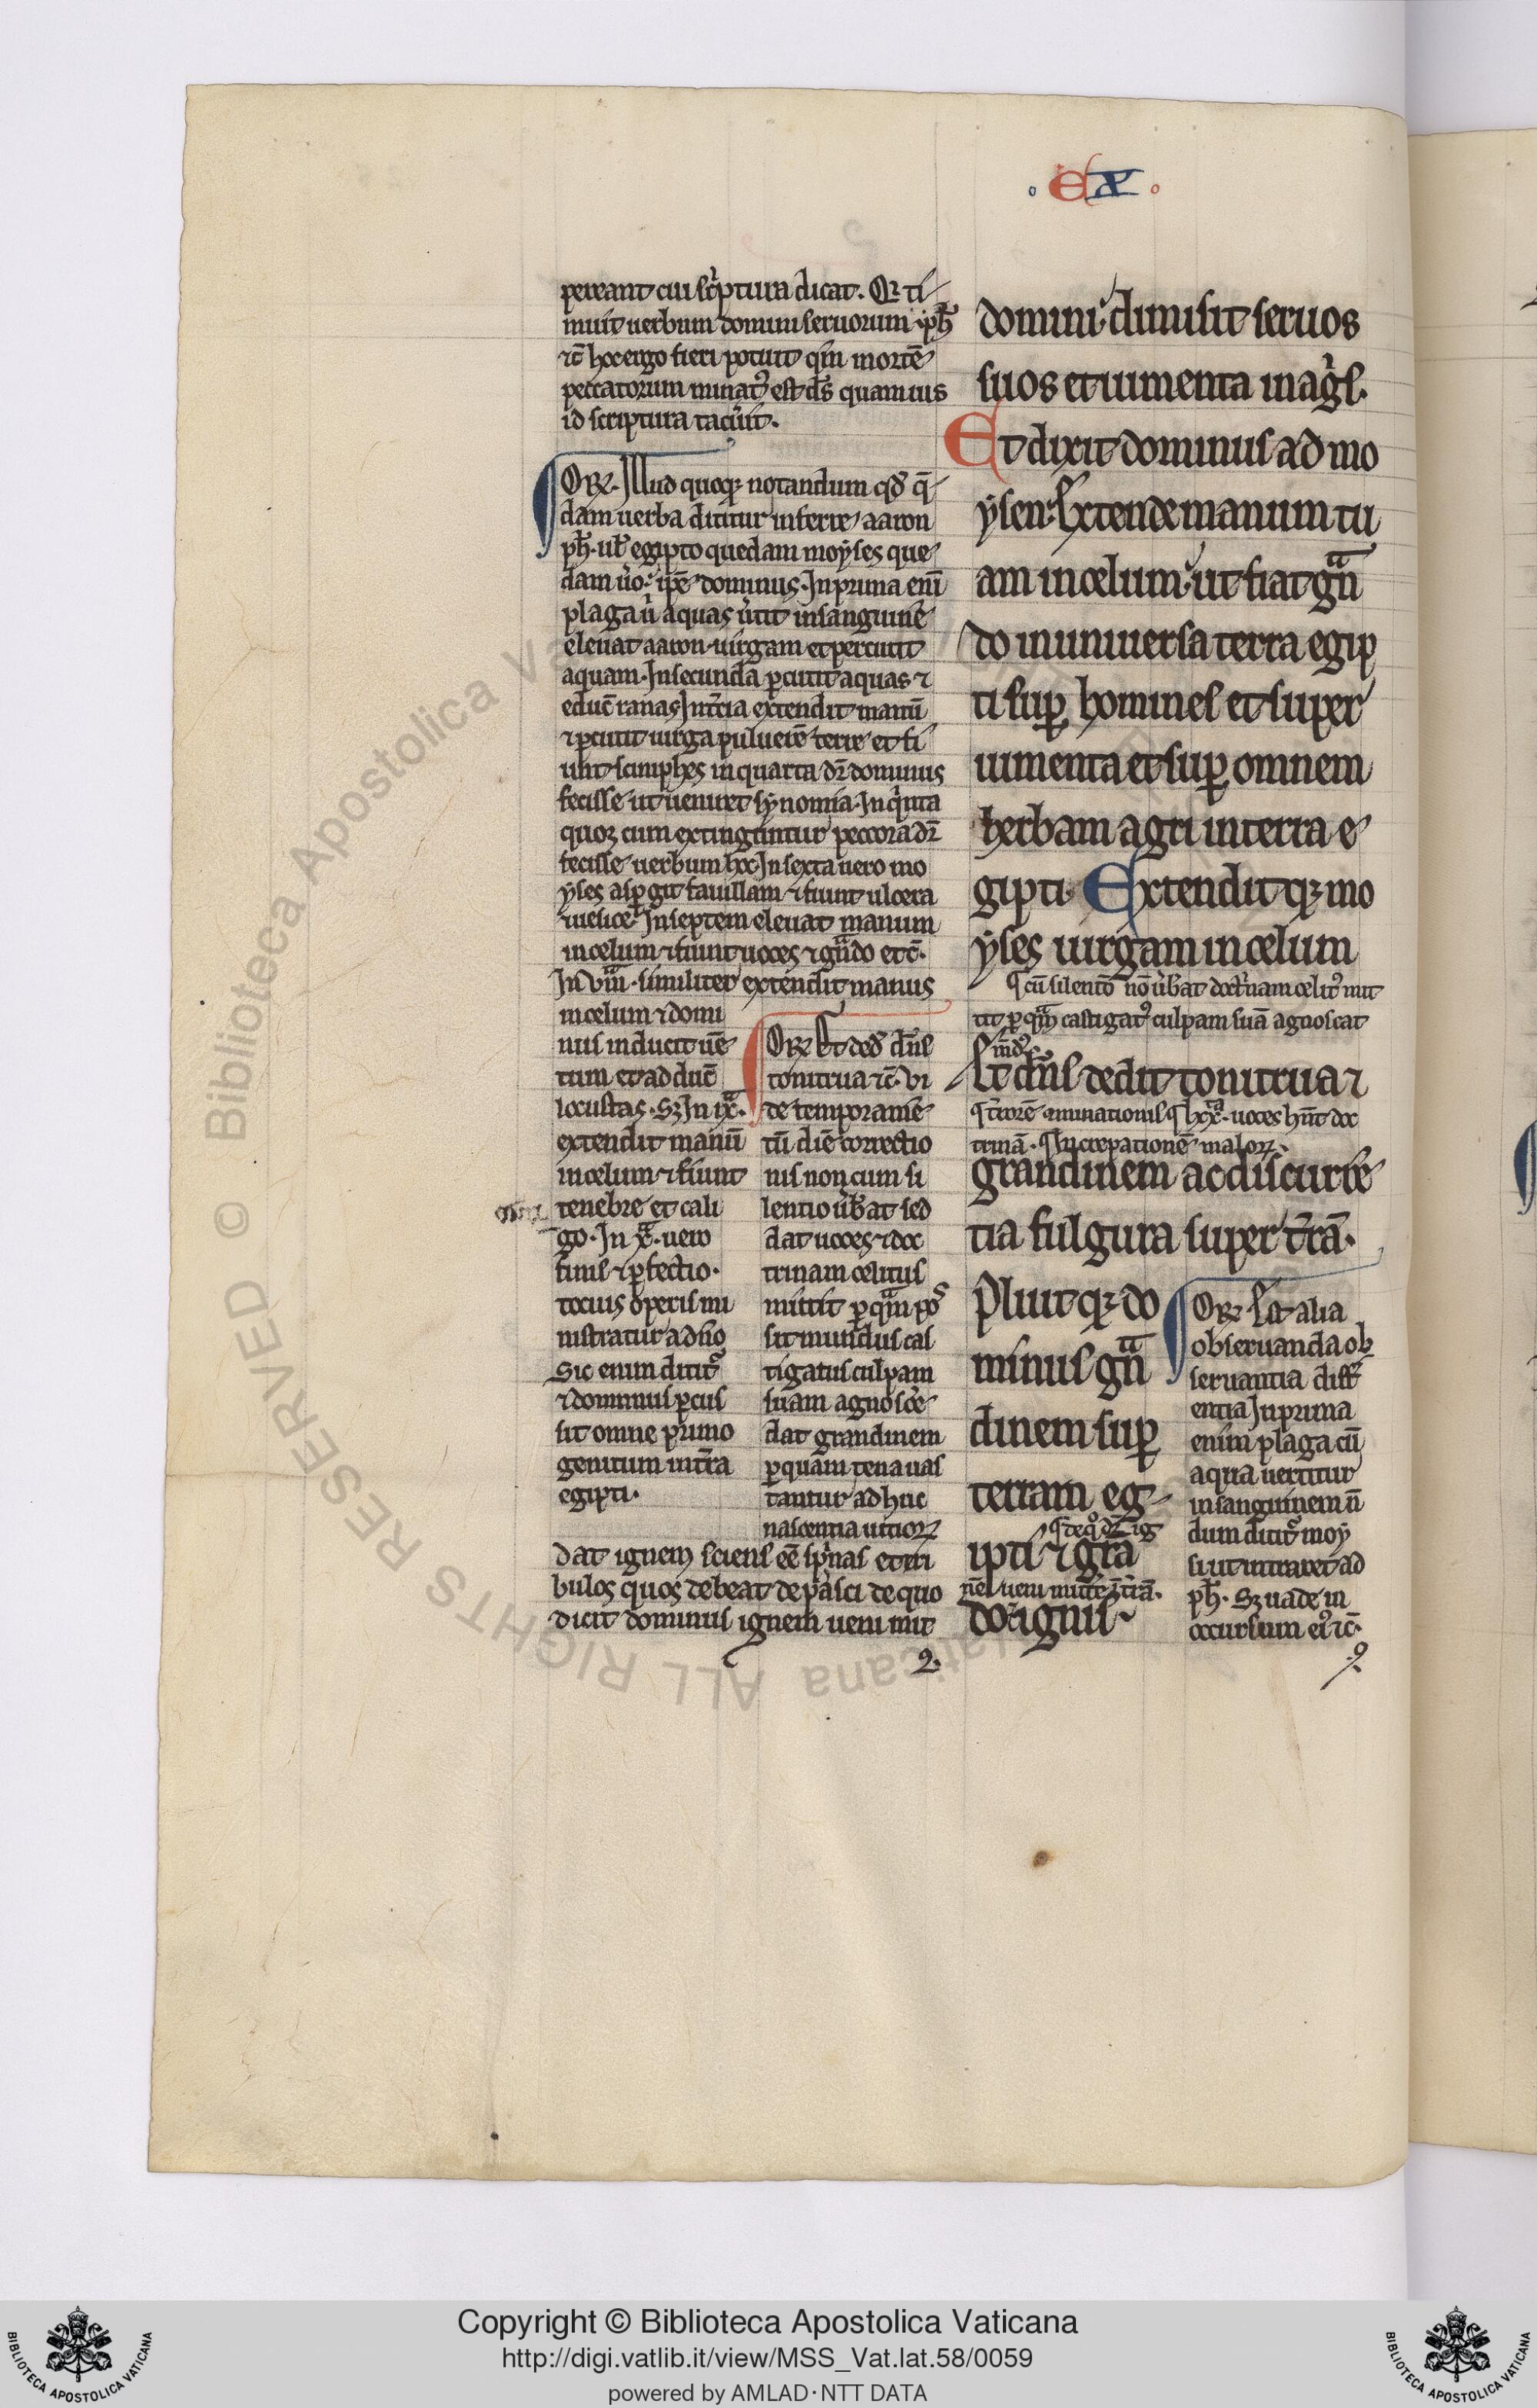 .EX.
pereant cui sc'ptura dicat. Qr ti
muit uerbum domini seruorum ph̄
⁊c̄ hoc ergo fieri potuit qm̄ mortē
peccatorum minatꝰ est ds̄ quamuis
id scriptura tacuit.
ORꝫ. Illud quoqꝫ notandum qd̄ q̄
dam uerba dicitur inferre aaron
ph̄. ul̄ egipto quedam moyses que
dam u'o ip̄e dominus. In prima eni
plaga u' aquas u'tit in sanguinē
eleuat aaron uirgam et percutit
aquam. In secunda ꝑcutit aquas ⁊
educ̄ ranas In tc'ia extendit manū
⁊ ꝑcutit uirga puluerē terre et fi
unt sciniphes in quarta dr̄ dominus
fecisse ut ueniret synomia. In q'nta
quoꝫ cum extinguntur peccora dr̄
fecisse uerbum hoc. In sexta uero mo
yses aspgit fauillam ⁊ fiunt ulcera
⁊ uesice. In septem eleuat manum
in celum ⁊ fiunt uoces ⁊ gn̄do etc̄.
In viiiª. similiter extendit manus
in celum ⁊ domi
nus inducit uē
tum et adduc̄
locustas. Sꝫ In ixª.
extendit manū
in celum ⁊ fiunt
tenebre et cali
go. In xª. uero
finis ⁊ ꝑfectio.
tocius operis mi
nistratur a dn̄o
Sic enim dicit'
⁊ dominus ꝑcus
sit omne primo
genitum in tr̄a
egipti.
ORꝫ Et ded' dn̄s
tonitrua ⁊c̄. Vi
de temporamē
tū diē correctio
nis non cum si
lentio u'b'at sed
dat uoces ⁊ doc
trinam celitus
mittit ꝑ qªm pos
sit mundus cas
tigatus culpam
suam agnosce'
dat grandinem
ꝑ quam tena uas
tantur adhuc
nascentia uitioꝝ
dat ignem sciens ee̅ sp'nas et tri
bulos quos debeat depasci de quo
dicit dominus ignem ueni mit
domini dimisit seruos
suos et iumenta in ag'l.
Et dixit dominus ad mo
ysen. Extende manum tu
am in celum ut fiat gªn
do in uniuersa terra egip
ti suꝑ homines et super
iumenta et suꝑ omnem
herbam agri in terra e
gipti. Extendit qꝫ mo
yses uirgam in celum
¶ cū silento' nō u'b'at doct'nam celitꝰ mit
tit ꝑ qªm castigatꝰ culpam suā agnoscat
mūdꝰ
Et dn̄s dedit tonitrua ⁊
¶ t'rorē cōminationis ¶ hxª. uoces hn̄t doc
trinā. ¶ Increpationē maloꝝ
grandinem ac discurre
tia fulgura super tr̄ā.
Pluit qꝫ do
minus gªn
dinem suꝑ
terram eg
¶ de qº dr̄ ig
ipti ⁊ grā
nē ueni mitt'e ī tr̄ā.
do ⁊ ignis
ORꝫ Est alia
obseruanda ob
seruantia diff'
entia In prima
enim plaga cū
aqua uertitur
in sanguinem n̄
dum dicit' moy
si ut intraret ad
ph̄. Sꝫ uade in
occursum eiꝰ ⁊c̄.
Copyright © Biblioteca Apostolica Vaticana
http://digi.vatlib.it/view/MSS_Vat.lat.58/0059
powered by AMLAD·NTT DATA
BIBLIOTECA APOSTOLICA VATICANA
BIBLIOTECA APOSTOLICA VATICANA
Biblioteca Apostolica Vaticana ALL RIGHTS RESERVED ©